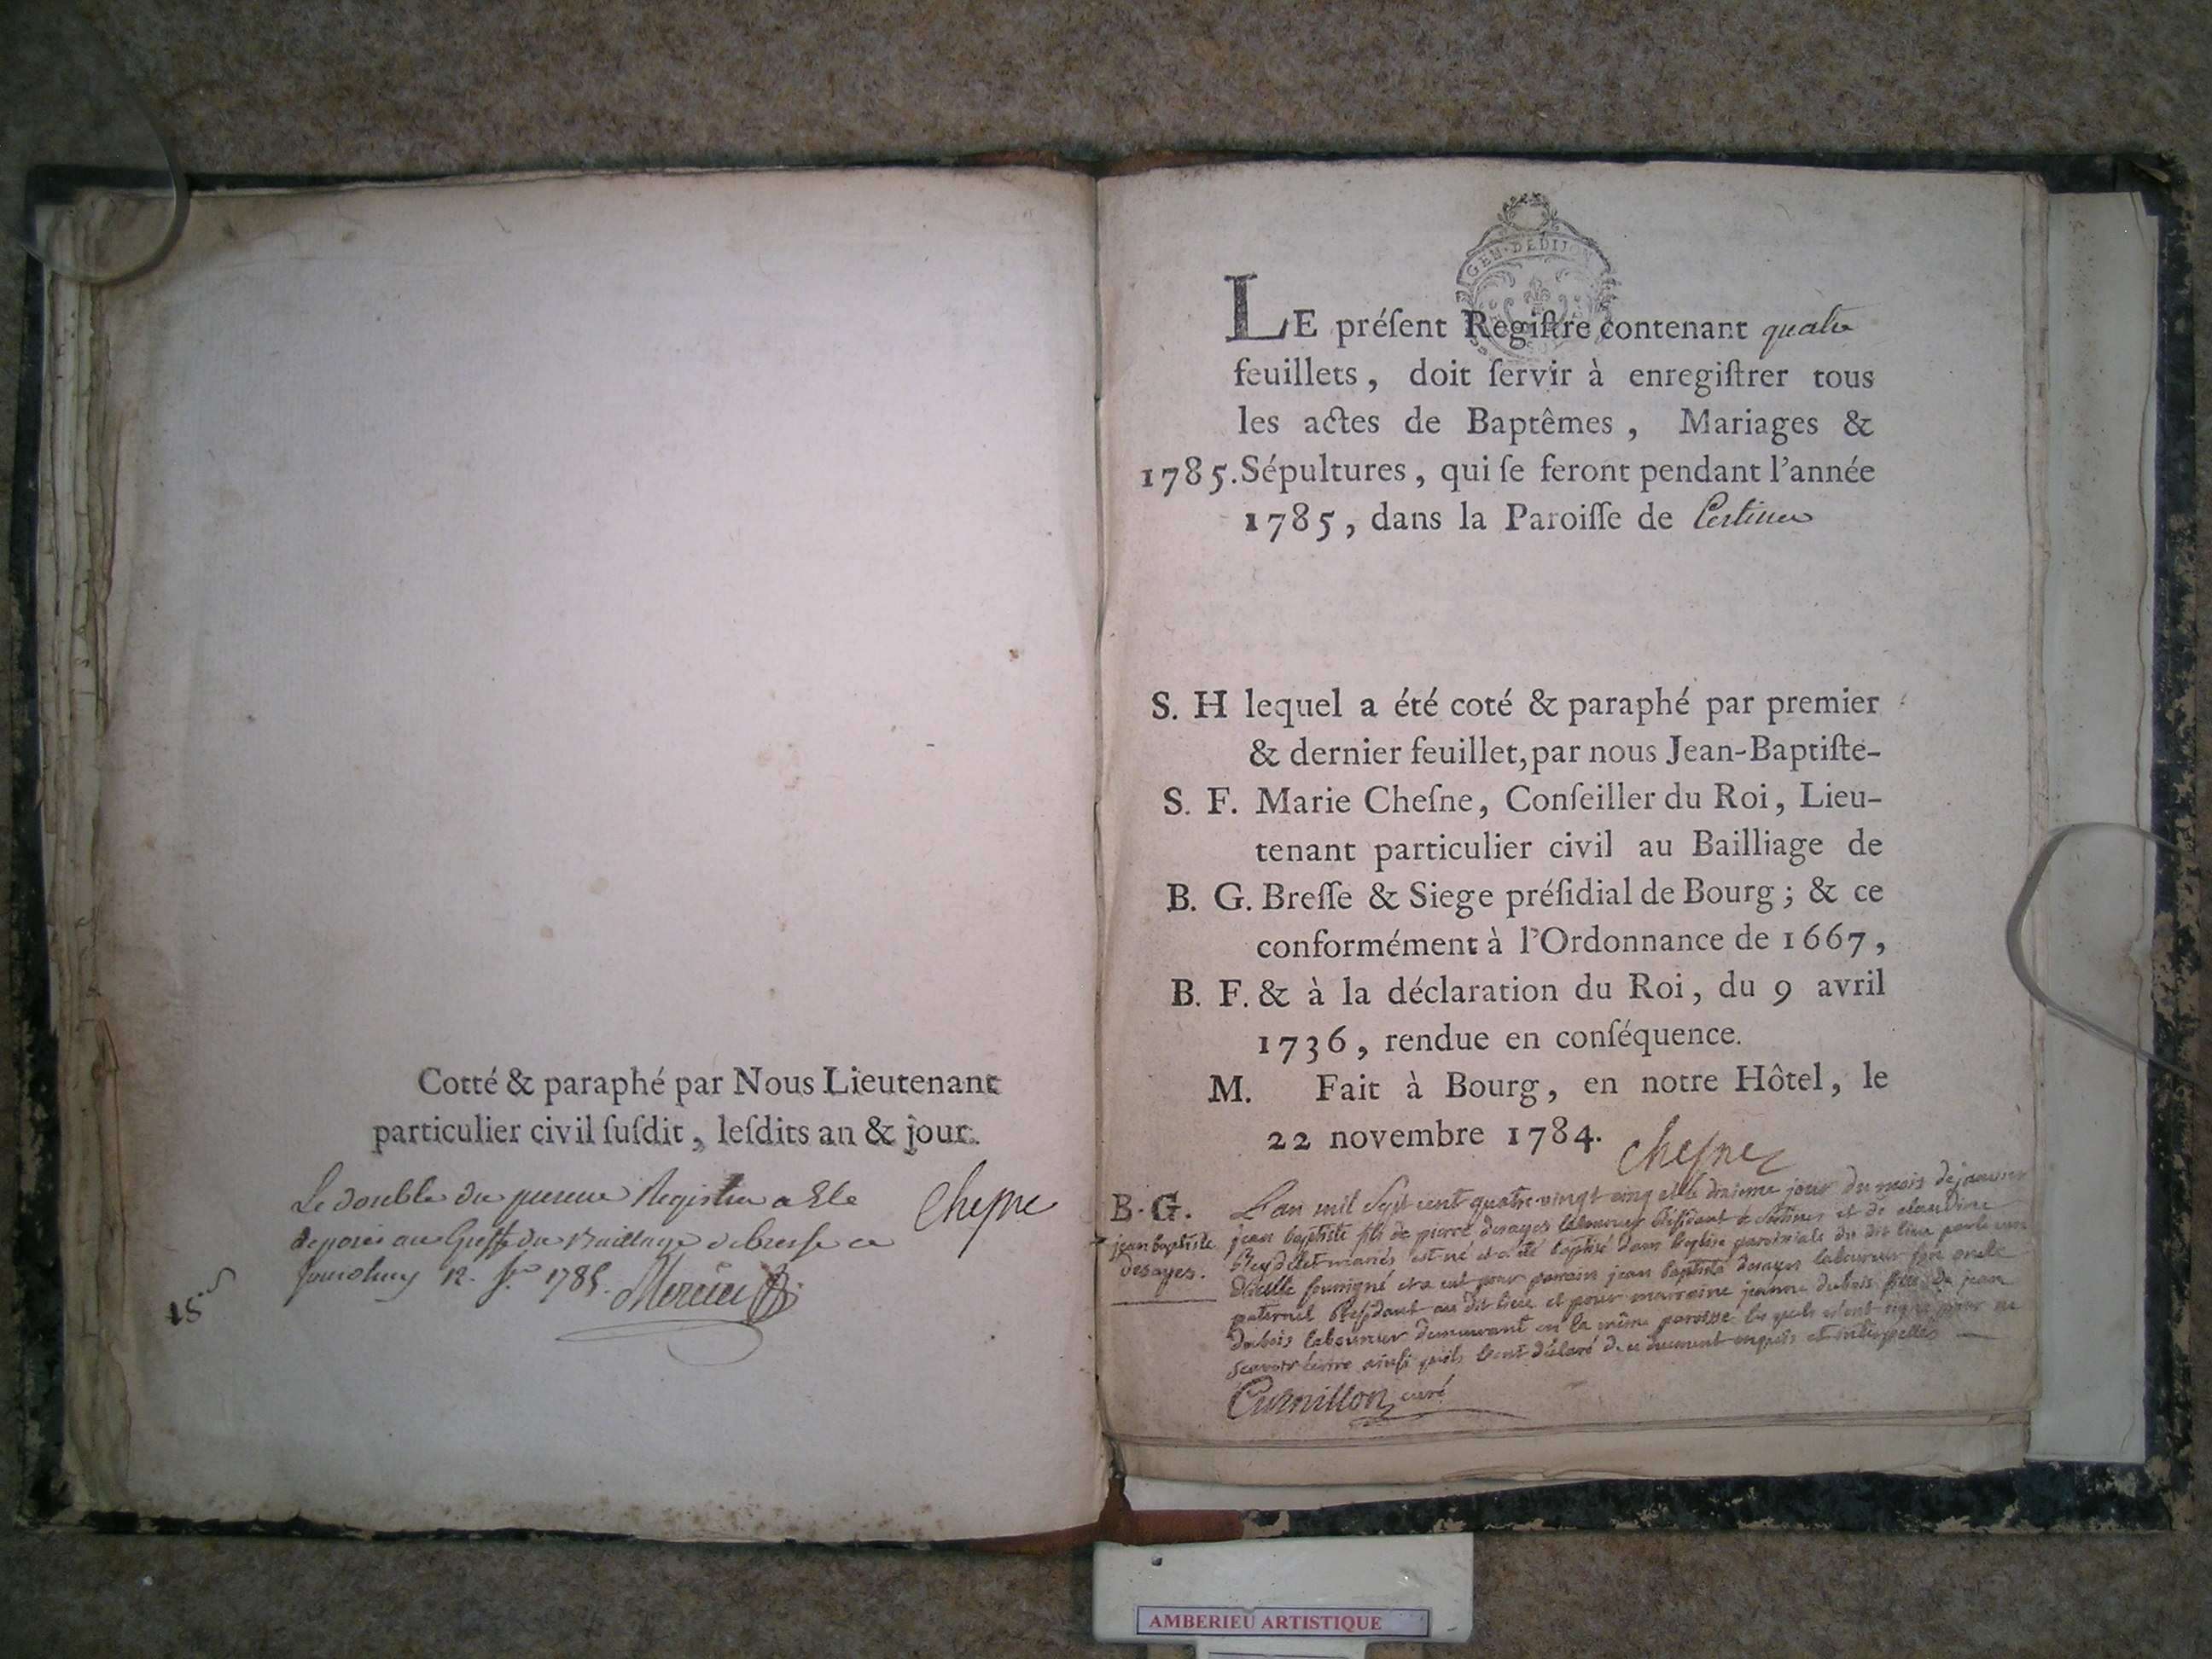 Cotté & paraphé par Nous Lieutenant
particulier civil ſuſdit, leſdits an & jour.
Le double du Registre a Ete
au Greffe du Bailliage de bresse ce
12. 1785. Mercier
Chesne
GEN·DEDIJ
LE préſent Regiſtre contenant quatre
feuillets, doit ſervir à enregiſtrer tous
les actes de Baptêmes, Mariages &
1785. Sépultures, qui ſe feront pendant l'année
1785, dans la Paroiſſe de Certines
S. H lequel a été coté & paraphé par premier
& dernier feuillet, par nous Jean-Baptiſte-
S. F. Marie Cheſne, Conſeiller du Roi, Lieu-
tenant particulier civil au Bailliage de
B. G. Breſſe & Siege préſidial de Bourg; & ce
conformément à l'Ordonnance de 1667,
B. F. & à la déclaration du Roi, du 9 avril
1736, rendue en conſéquence.
M. Fait à Bourg, en notre Hôtel, le
22 novembre 1784.
Chesne
B·G.
jean baptiste
desayes.
L'an mil Sept cent quatre-vingt cinq et le jour du mois de janvier
jean baptiste fils de pierre desayes laboureur Résidant à et de claudine
mariés est né et a été baptisé dans l'eglise paroissiale du dit lieu par le curé
soussigné et a eut pour parrain jean baptiste desayes laboureur son oncle
paternel Résidant au dit lieu et pour marraine jeanne dubois fille de jean
dubois laboureur demeurant en la même paroisse les quels n'ont signé pour ne
scavoir écrire ainsi qu'ils l'ont déclaré de ce duement enquis et interpellés
Curnillon curé
AMBERIEU ARTISTIQUE